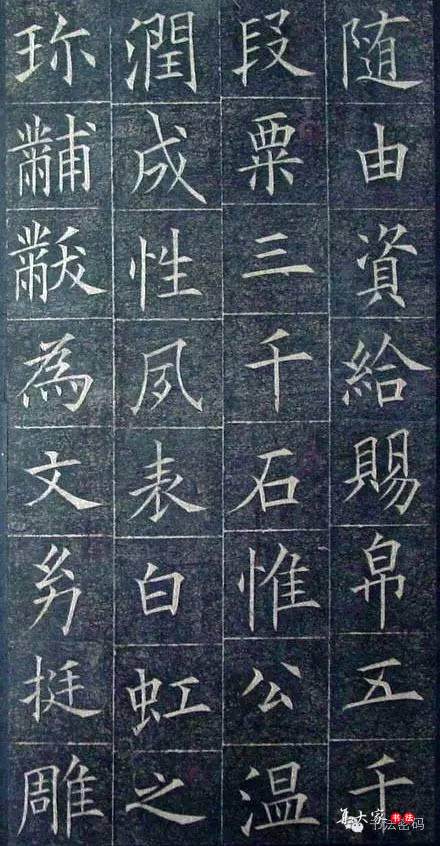 随由資給賜帛五千
段粟三千石惟公温
潤成性夙表白虹之
珎黼黻為文幼挺雕
集大家书法
书法密码